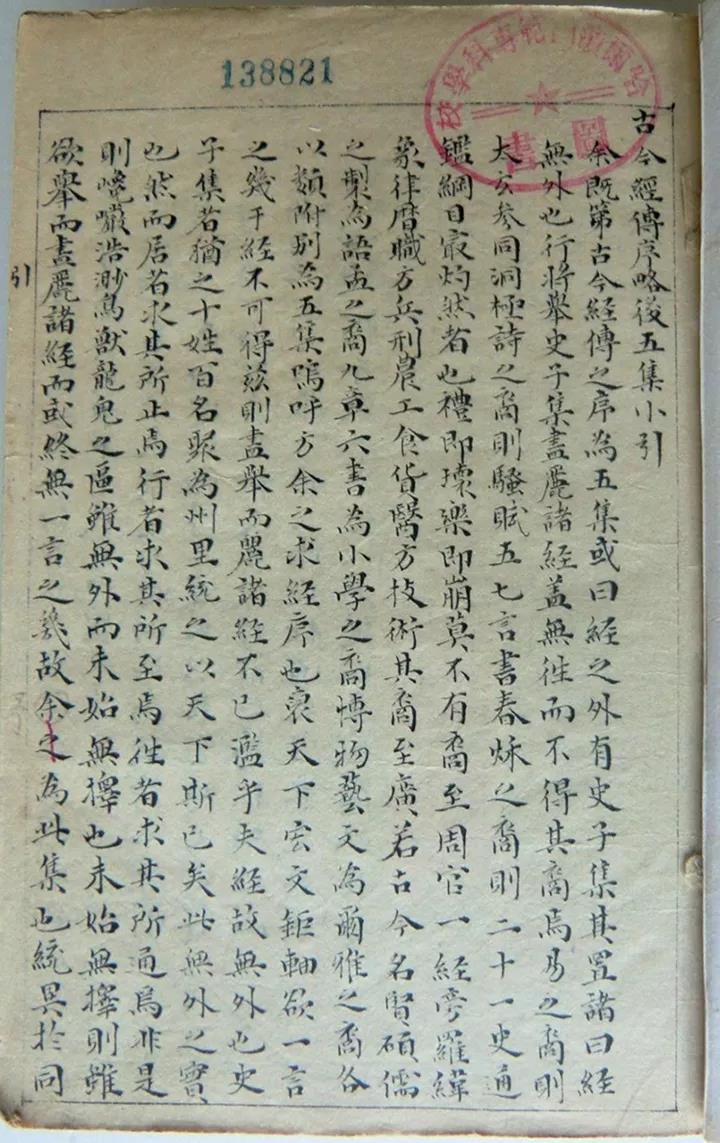 138821
哈爾濱師範專科學校
圖書
古今經傳序略後五集小引
余既第古今經傳之序為五集或曰經之外有史子集其置諸曰經
無外也行將舉史子集盡麗諸經蓋無徃而不得其裔焉易之裔則
太玄參同洞極詩之裔則騷賦五七言書春秌之裔則二十一史通
鑑綱目㝡灼然者也禮即壞樂即崩莫不有裔至周官一經旁羅緯
象律曆職方兵刑農工食貨醫方技術其裔至廣若古今名賢碩儒
之製為語孟之裔九章六書為小學之裔博物藝文為爾雅之裔各
以類附別為五集嗚呼方余之求經序也裒天下宏文鉅軸欲一言
之幾于經不可得茲則盡舉而麗諸經不已濫乎夫經故無外也史
子集者猶之十姓百名聚為州里統之以天下斯已矣此無外之實
也然而居者求其所止焉行者求其所至焉徃者求其所通焉非是
則嶢巖浩渺鳥獸龍鬼之區雖無外而未始無擇也未始無擇則雖
欲舉而盡麗諸經而或終無一言之幾故余之為此集也統異於同
引